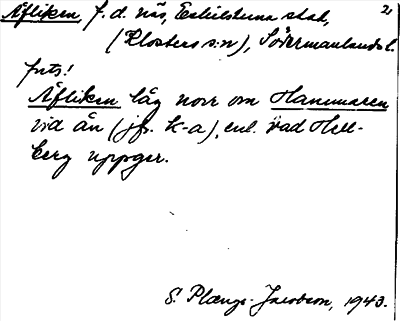 Åfliken, f.d. näs, Eskilstuna stad, 2
(Klosters s:n), Södermanlands l.
forts!
Åfliken låg norr om Hammaren
vid ån (jfr. k-a), enl. vad Hell-
berg uppger.
S. Plænge Jacobson, 1943.